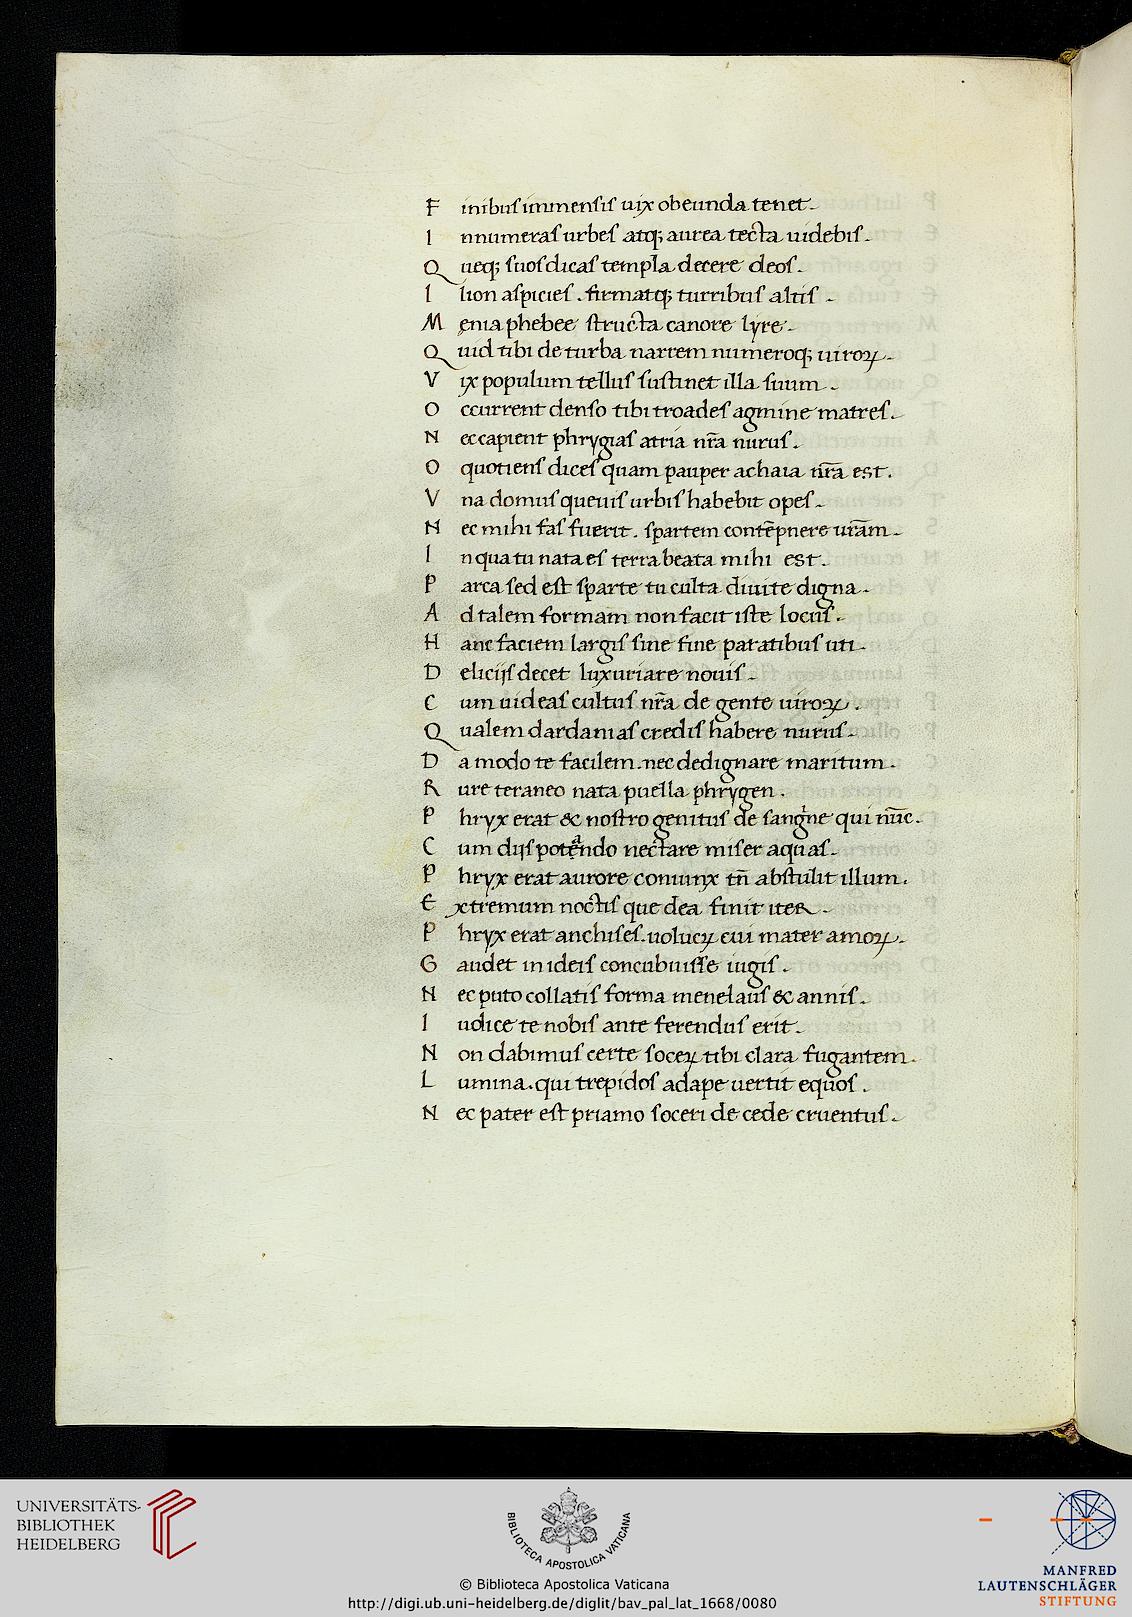 F inibus immensis uix obeunda tenet.
I nnumeras urbes atq; aurea tecta uidebis.
Q ueq; suos dicas templa decere deos.
I lion aspicies . firmatq; turribus altis .
M enia phebee structa canore lyre.
Q uid tibi de turba narrem numeroq; uiroꝝ.
V ix populum tellus sustinet illa suum .
O ccurrent denso tibi troades agmine matres.
N ec capient phrygias atria nr̄a nurus.
O quotiens dices quam pauper achaia nr̄a est.
V na domus queuis urbis habebit opes.
N ec mihi fas fuerit . spartem contēpnere urām.
I n qua tu nata es terra beata mihi est.
P arca sed est sparte tu culta diuite digna.
A d talem formam non facit iste locus.
H anc faciem largis sine fine paratibus uti.
D eliciis decet luxuriare nouis.
C um uideas cultus nr̄a de gente uiroꝝ.
Q ualem dardanias credis habere nurus.
D a modo te facilem . nec dedignare maritum.
R ure teraneo nata puella phrygen.
P hryx erat & nostro genitus de sangne qui nūc.
C um diis potando nectare miser aquas.
P hryx erat aurore coniunx tn̄ abstulit illum.
E xtremum noctis que dea finit iter.
P hryx erat anchises . uolucꝝ cui mater amoꝝ.
G audet in ideis concubuisse iugis.
N ec puto collatis forma menelaus & annis.
I udice te nobis ante ferendus erit.
N on dabimus certe soceꝝ tibi clara fugantem.
L umina . qui trepidos a dape uertit equos.
N ec pater est priamo soceri de cede cruentus.
UNIVERSITÄTS-
BIBLIOTHEK
HEIDELBERG
BIBLIOTECA APOSTOLICA VATICANA
MANFRED
LAUTENSCHLÄGER
STIFTUNG
© Biblioteca Apostolica Vaticana
http://digi.ub.uni-heidelberg.de/diglit/bav_pal_lat_1668/0080